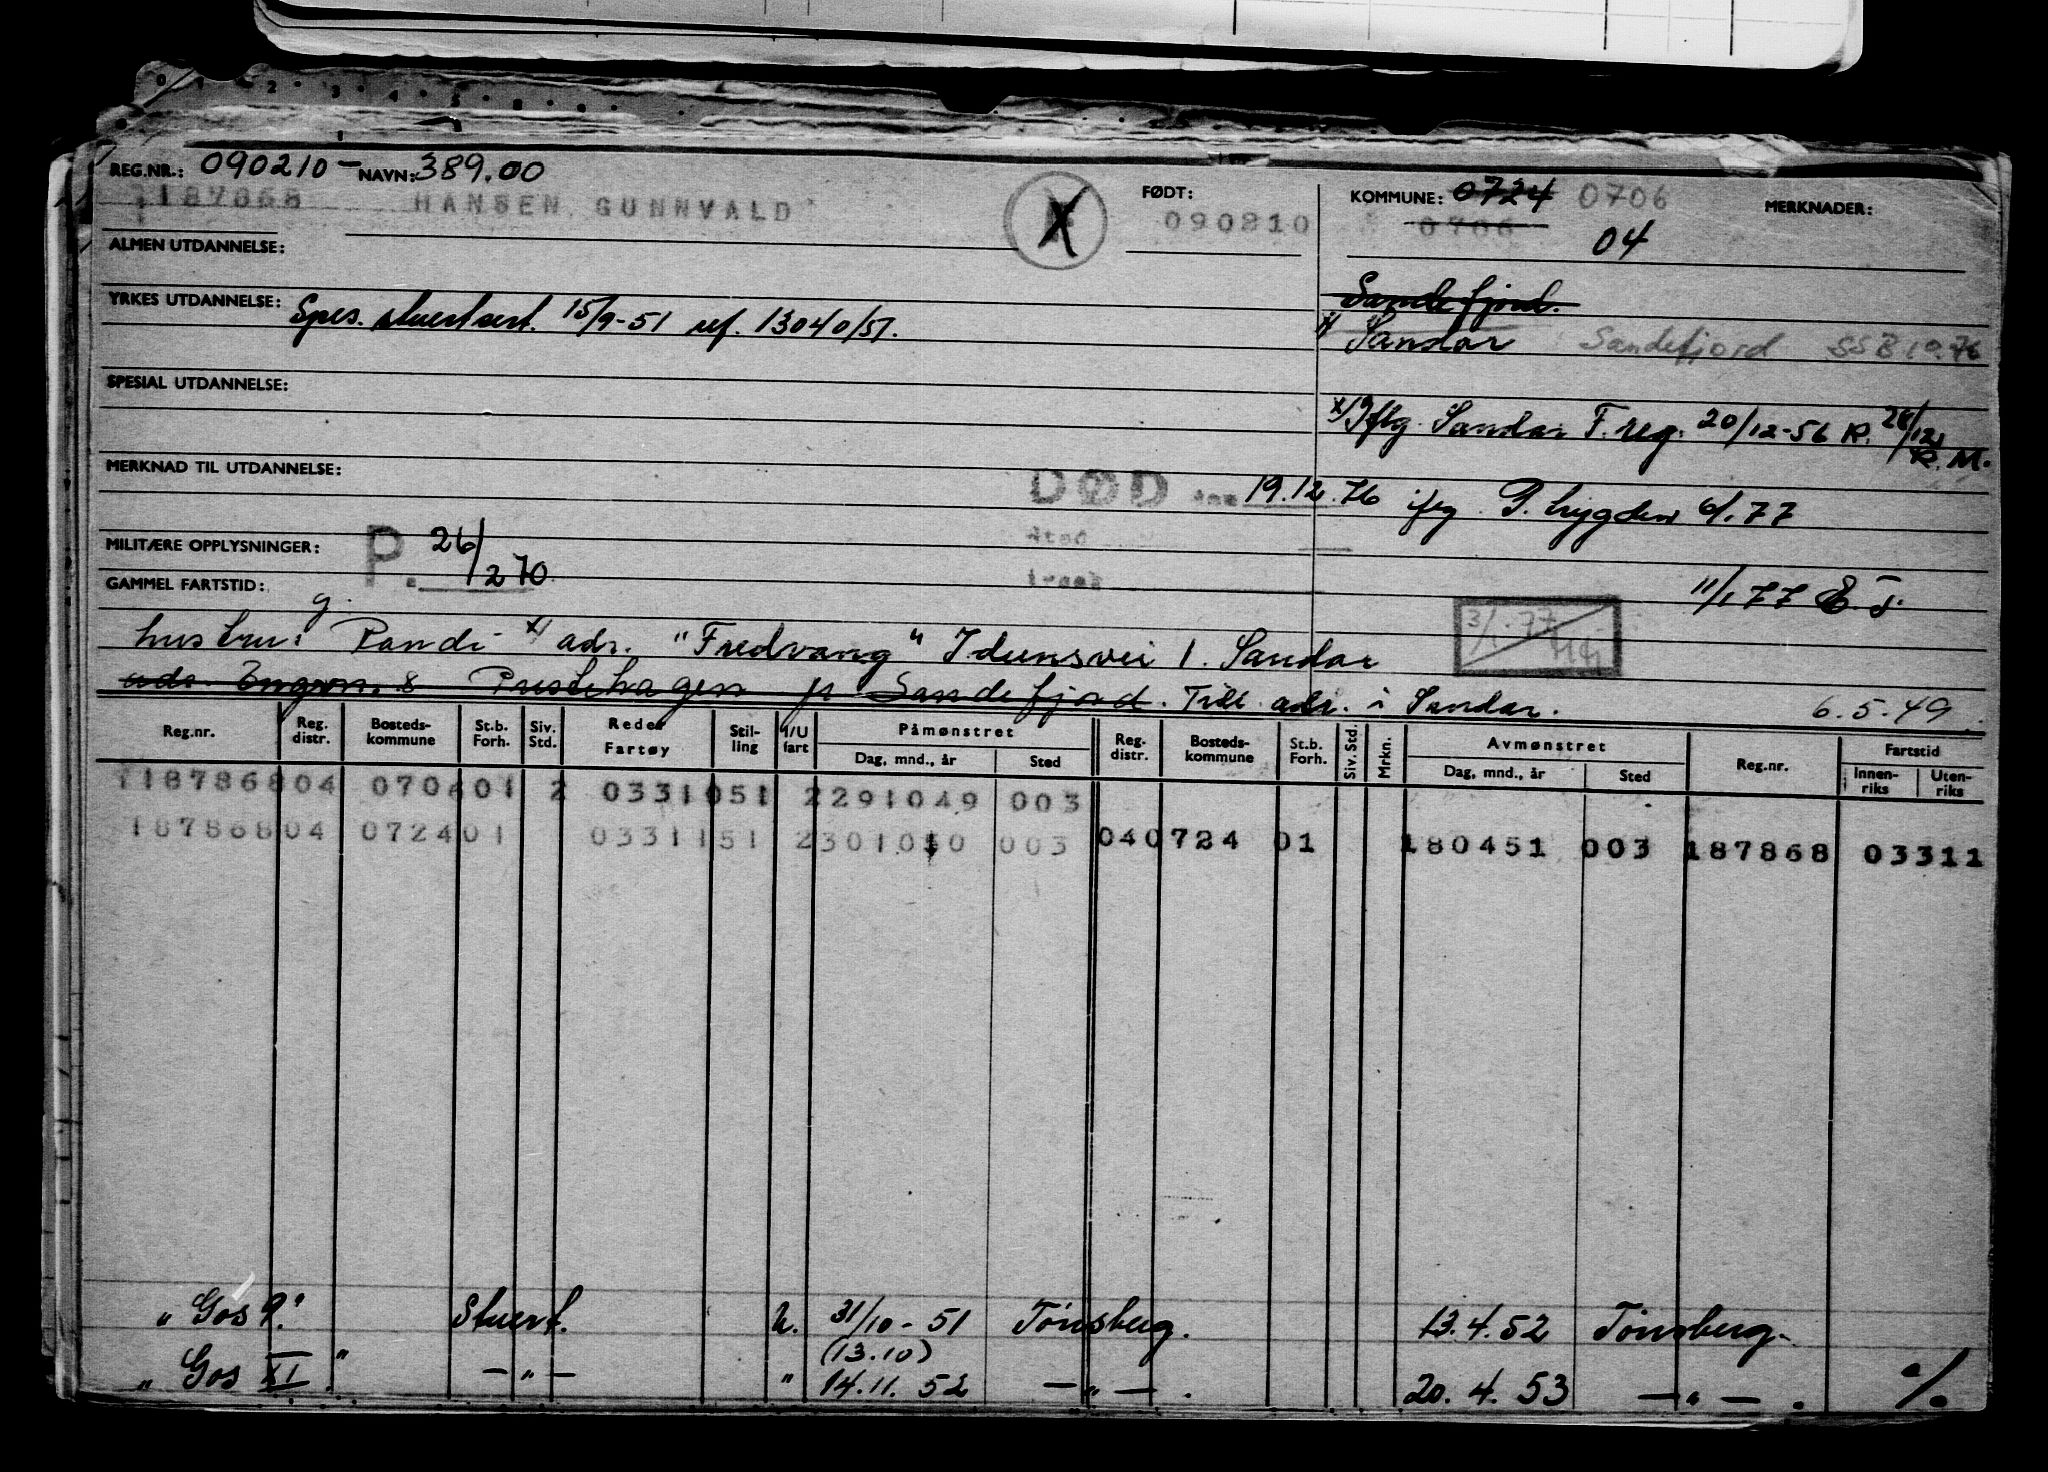 REG.NR.: 090210- NAVN: 389.00 FØDT: KOMMUNE: 0724 0706 MERKNADER:
187868 HANSEN GUNNVALD 090210 0706 04
ALMEN UTDANNELSE:
Sandefjord.
YRKES UTDANNELSE: Spes. stuertsert. 15/9-51 ref. 13040/51.
x/ Sandar Sandefjord SSB 19.76
SPESIAL UTDANNELSE:
x/ Iflg. Sandar F.reg. 20/12-56 R. 28/12 R.M.
MERKNAD TIL UTDANNELSE:
DØD den 19.12.76 iflg P. Lygden 6/1.77
MILITÆRE OPPLYSNINGER: P. 26/2 70
sted
GAMMEL FARTSTID:
11/1 77 E.T.
3/1.77
hustru: g. Randi x/ adr. "Fredvang" Idunsvei 1. Sandar
adr. Engvn. 8 Prestehagen pr Sandefjord. Till adr. i Sandar. 6.5.49
Reg.nr. Reg. distr. Bosteds-kommune St.b. Forh. Siv. Std. Reder Fartøy Stil-ling I/U fart Påmønstret Dag, mnd., år Sted Reg. distr. Bosteds-kommune St.b. Forh. Siv. Std. Mrkn. Avmønstret Dag, mnd., år Sted Reg.nr. Fartstid Innen-riks Uten-riks
187868 04 0706 01 2 03310 51 2 291049 003
187868 04 0724 01 03311 51 2 301050 003 04 0724 01 180451 003 187868 03311
"Gos 9." Stuert. U. 31/10-51 Tønsberg. 13.4.52 Tønsberg.
(13.10)
"Gos XI". —"— " 14.11.52 —"—. 20.4.53 —"—. %